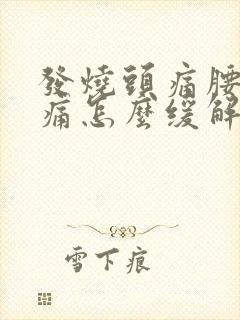 發燒頭痛腰
痛怎麼緩解
雪下痕